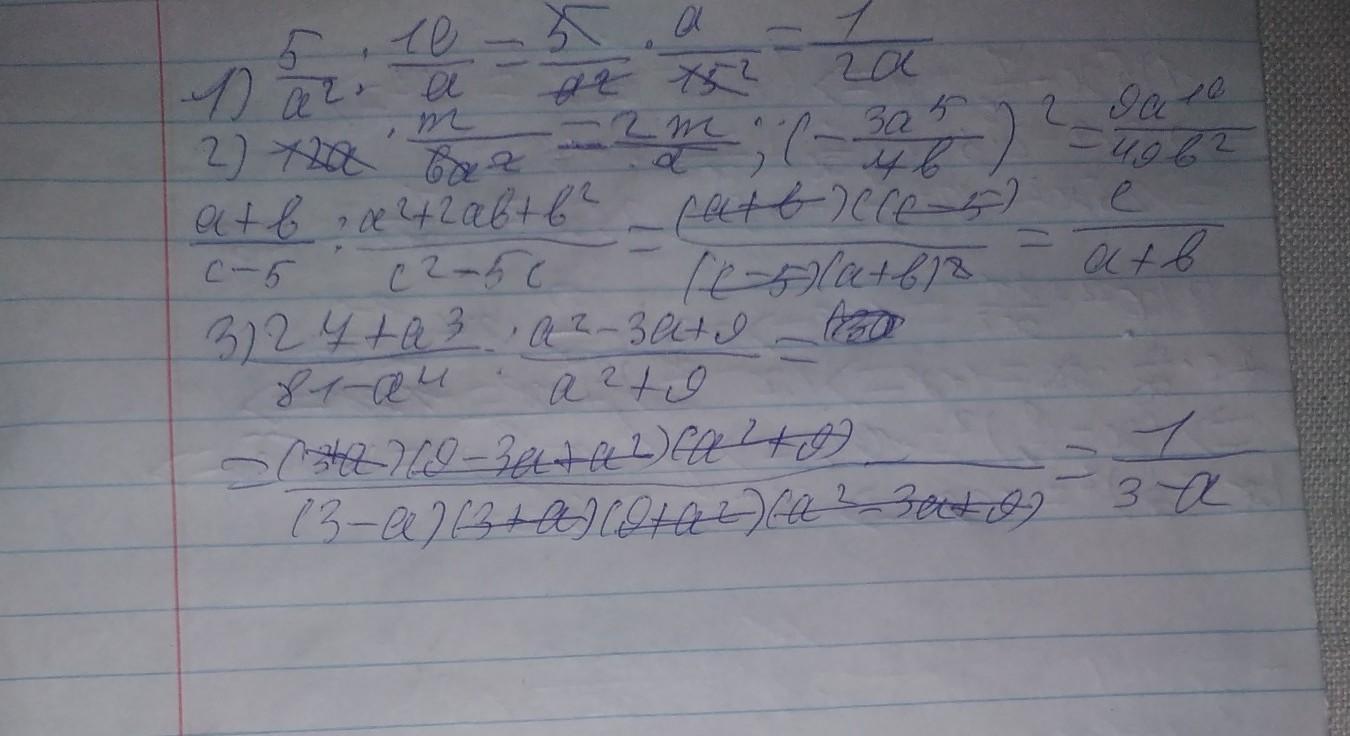 1) 5/a² : 10/a = 5/a² · a/15² = 1/2a
2) 12a · m/6a² = 2m/a ; (-3a⁵/7b)² = 9a¹⁰/49b²
a+b/c-5 : a²+2ab+b²/c²-5c = (a+b)c(c-5)/(c-5)(a+b)² = c/a+b
3) 27+a³/81-a⁴ : a²-3a+9/a²+9 =
= (3+a)(9-3a+a²)(a²+9)/(3-a)(3+a)(9+a²)(a²-3a+9) = 1/3-a